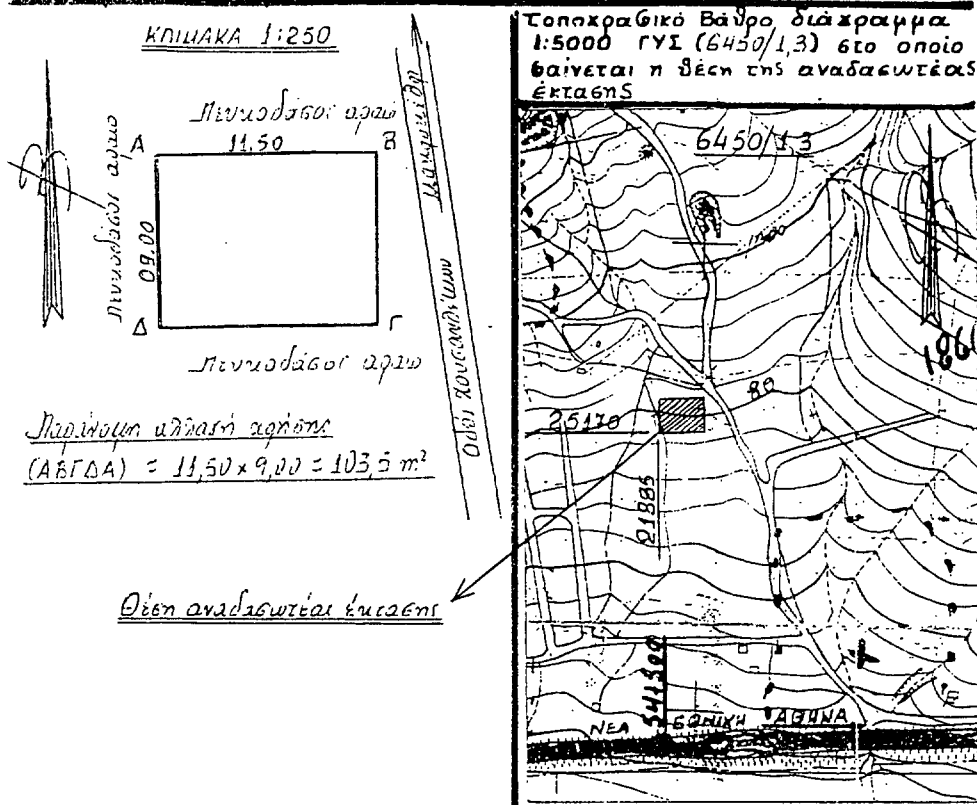 ΚΛΙΜΑΚΑ 1:250
Πευκοδάσος αραιό
11,50
Α
Β
Πευκοδάσος αραιό
09.00
Δ
Γ
Πευκοδάσος αραιό
Οδός
Παράνομη αλλαγή χρήσης
(ΑΒΓΔΑ) = 11,50 x 9,00 = 103,5 m²
Θέση αναδασωτέας έκτασης
Τοπογραφικό Βάθρο διάγραμμα
1:5000 ΓΥΣ (6450/1,3) στο οποίο
φαίνεται η θέση της αναδασωτέας
έκτασης
6450/1,3
80
25170
21885
541300
ΝΕΑ ΕΘΝΙΚΗ ΑΘΗΝΑ